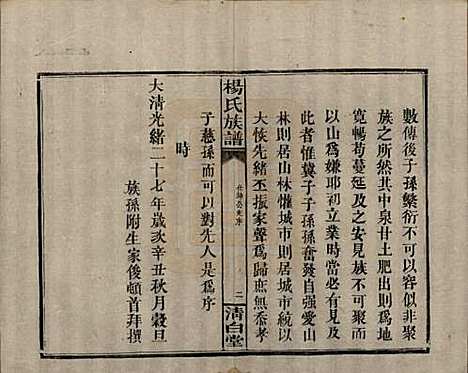 數傳後子孫繁衍不可以容似非聚
族之所然其中泉甘土肥出則爲地
寬暢苟蔓延及之安見族不可聚而
以山爲嫌耶初立業時當亦有見及
此者惟冀子子孫孫奮發自强愛山
林則居山林懽城市則居城市統以
大恢先緒丕振家聲爲歸庶無忝孝
楊氏族譜
二
清白堂
子慈孫而可以對先人是爲序
時
大清光緒二十七年歲次辛丑秋月穀旦
族孫附生家後頓首拜撰